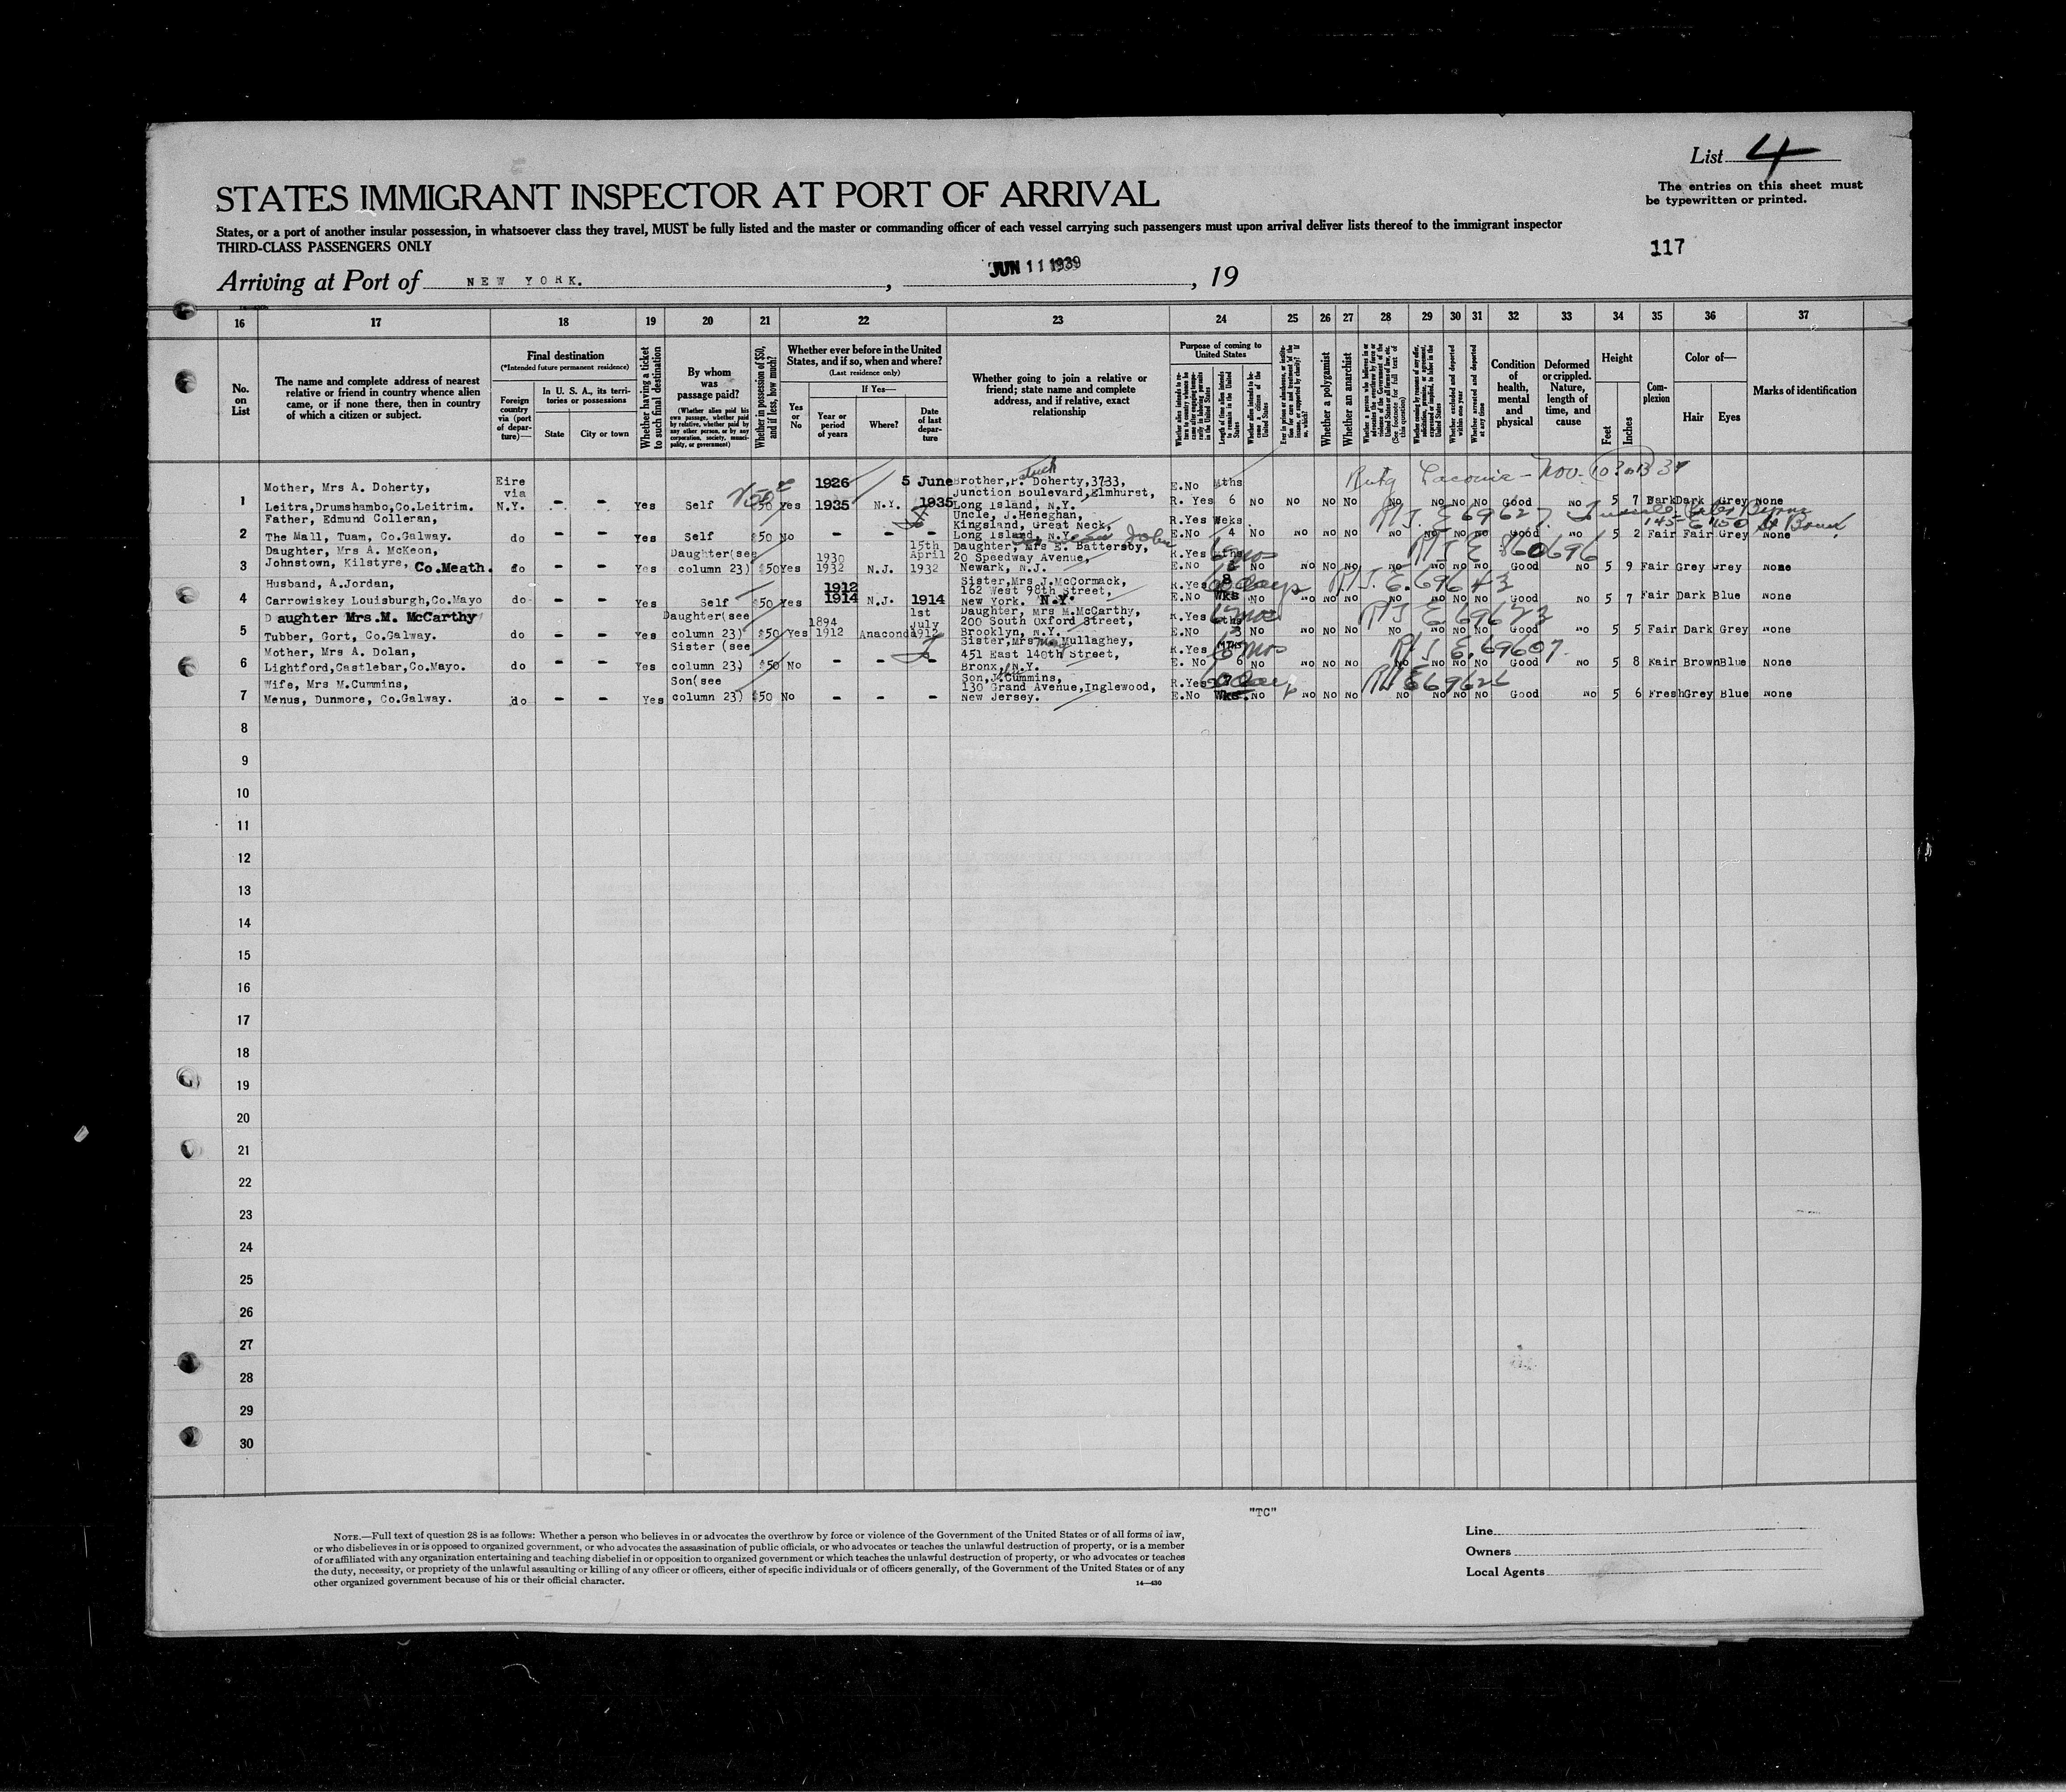 List 4
The entries on this sheet must
be typewritten or printed.
STATES IMMIGRANT INSPECTOR AT PORT OF ARRIVAL
States, or a port of another insular possession, in whatsoever class they travel, MUST be fully listed and the master or commanding officer of each vessel carrying such passengers must upon arrival deliver lists thereof to the immigrant inspector
THIRD-CLASS PASSENGERS ONLY
117
Arriving at Port of NEW YORK. , JUN 11 1939 , 19
16 17 18 19 20 21 22 23 24 25 26 27 28 29 30 31 32 33 34 35 36 37
No. on List
The name and complete address of nearest
relative or friend in country whence alien
came, or if none there, then in country
of which a citizen or subject.
Final destination
(*Intended future permanent residence)
Foreign
country
via (port
of depar-
ture)—
In U. S. A., its terri-
tories or possessions
State
City or town
Whether having a ticket
to such final destination
By whom
was
passage paid?
(Whether alien paid his
own passage, whether paid
by relative, whether paid by
any other person, or by any
corporation, society, munici-
pality, or government)
Whether in possession of $50,
and if less, how much?
Whether ever before in the United
States, and if so, when and where?
(Last residence only)
Yes
or
No
If Yes—
Year or
period
of years
Where?
Date
of last
depar-
ture
Whether going to join a relative or
friend; state name and complete
address, and if relative, exact
relationship
Purpose of coming to
United States
Whether a polygamist
Whether an anarchist
Whether excluded and deported
within one year
Whether arrested and deported
at any time
Condition
of
health,
mental
and
physical
Deformed
or crippled.
Nature,
length of
time, and
cause
Height
Feet
Inches
Com-
plexion
Color of—
Hair
Eyes
Marks of identification
Mother, Mrs A. Doherty, Eire via 1926 5 June Brother, P. Doherty, 3733, E.No Mths
Junction Boulevard, Elmhurst,
1 Leitra, Drumshambo, Co.Leitrim. N.Y. - - Yes Self $50 Yes 1935 N.Y. 1935 Long Island, N.Y. R. Yes 6 No No No No No No No No Good No 5 7 Dark Dark Grey None
Father, Edmund Colleran, Uncle, J.Heneghan,
Kingsland, Great Neck, R.Yes Weks
2 The Mall, Tuam, Co.Galway. do - - Yes Self $50 No - - - Long Island, N.Y. E.No 4 No No No No No No No No Good No 5 2 Fair Fair Grey None
Daughter, Mrs A. McKeon, Daughter(see 1930 15th April Daughter, Mrs E. Battersby, R.Yes 6 mos
20 Speedway Avenue,
3 Johnstown, Kilstyre, Co.Meath. do - - Yes column 23) $50 Yes 1932 N.J. 1932 Newark, N.J. E.No No No No No No No No No Good No 5 9 Fair Grey Grey None
Husband, A.Jordan, 1912 Sister, Mrs J.McCormack, R.Yes 8 days
162 West 98th Street,
4 Carrowiskey Louisburgh, Co.Mayo do - - Yes Self $50 Yes 1914 N.J. 1914 New York. N.Y. E.No Wks No No No No No No No No Good No 5 7 Fair Dark Blue None
Daughter Mrs.M. McCarthy Daughter(see 1894 1st July Daughter, Mrs M.McCarthy, R.Yes 6 mos
200 South Oxford Street,
5 Tubber, Gort, Co.Galway. do - - Yes column 23) $50 Yes 1912 Anaconda 1912 Brooklyn, N.Y. E.No 3 No No No No No No No No Good No 5 5 Fair Dark Grey None
Mother, Mrs A. Dolan, Sister (see Sister, Mrs Mullaghey, R.Yes 6 mos
451 East 140th Street,
6 Lightford, Castlebar, Co.Mayo. do - - Yes column 23) $50 No - - - Bronx, N.Y. E. No 6 No No No No No No No No Good No 5 8 Fair Brown Blue None
Wife, Mrs M.Cummins, Son(see Son, J.Cummins, R.Yes
130 Grand Avenue, Inglewood,
7 Menus, Dunmore, Co.Galway. do - - Yes column 23) $50 No - - - New Jersey. E.No Wks. No No No No No No No No Good No 5 6 Fresh Grey Blue None
8
9
10
11
12
13
14
15
16
17
18
19
20
21
22
23
24
25
26
27
28
29
30
"TC"
NOTE.—Full text of question 28 is as follows: Whether a person who believes in or advocates the overthrow by force or violence of the Government of the United States or of all forms of law,
or who disbelieves in or is opposed to organized government, or who advocates the assassination of public officials, or who advocates or teaches the unlawful destruction of property, or is a member
of or affiliated with any organization entertaining and teaching disbelief in or opposition to organized government or which teaches the unlawful destruction of property, or who advocates or teaches
the duty, necessity, or propriety of the unlawful assaulting or killing of any officer or officers, either of specific individuals or of officers generally, of the Government of the United States or of any
other organized government because of his or their official character.
14—430
Line
Owners
Local Agents